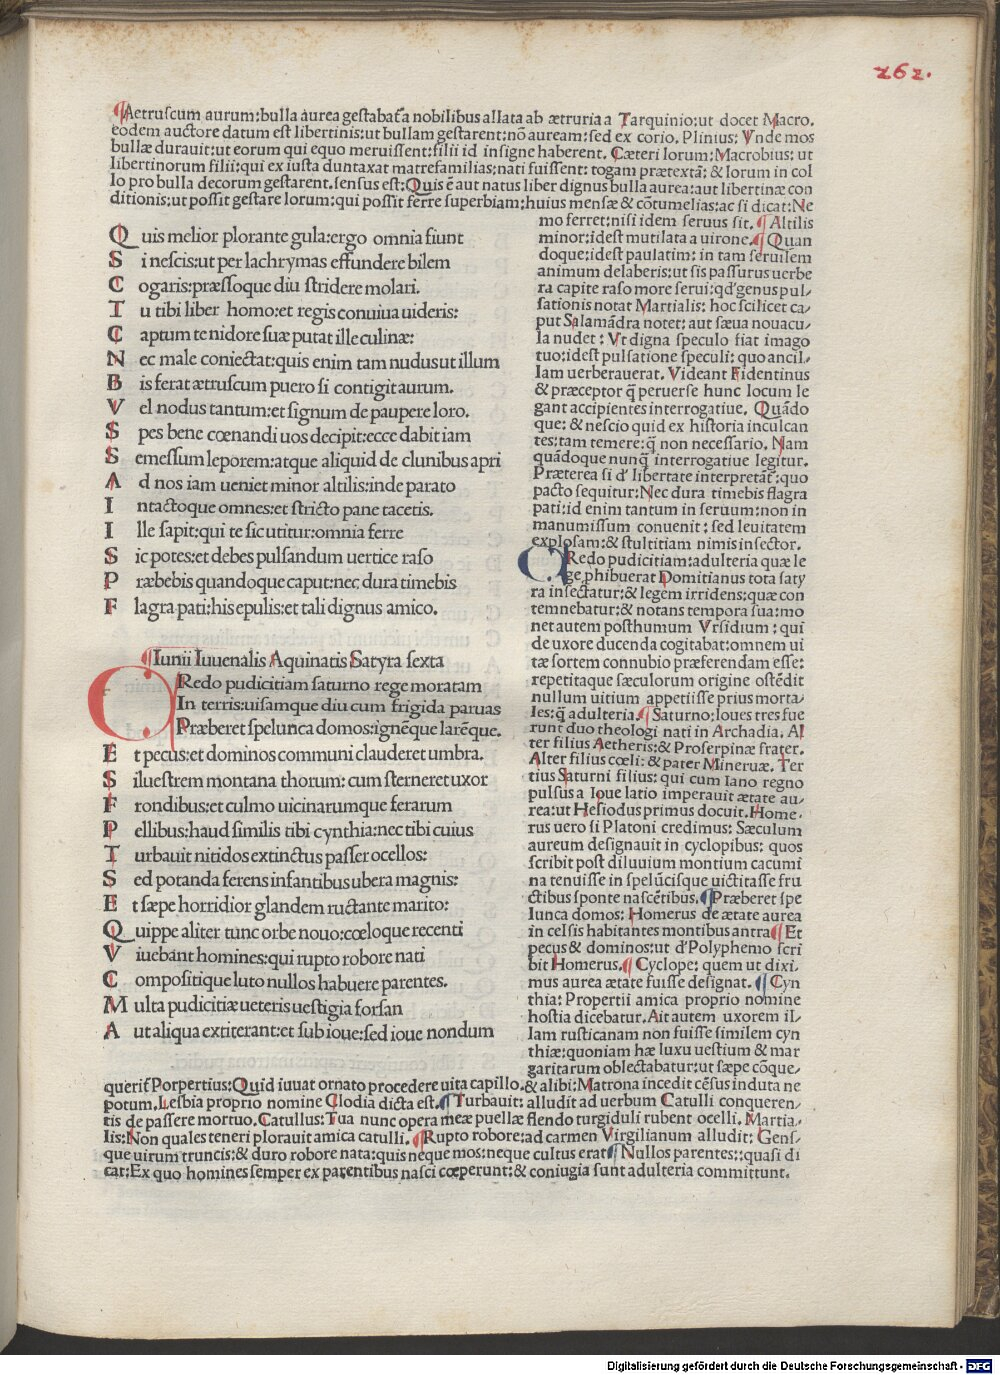 262.
¶Aetruscum aurum:bulla aurea gestabat̃a nobilibus allata ab ætruria a Tarquinio:ut docet Macro.
eodem auctore datum est libertinis:ut bullam gestarent:nō auream:sed ex corio. Plinius: Vnde mos
bullæ durauit:ut eorum qui equo meruissent:filii id insigne haberent. Cæteri lorum:Macrobius: ut
libertinorum filii:qui ex iusta duntaxat matrefamilias:nati fuissent: togam prætextā: & lorum in col
lo pro bulla decorum gestarent.sensus est:Quis ē aut natus liber dignus bulla aurea:aut libertinæ con
ditionis:ut possit gestare lorum:qui possit ferre superbiam:huius mensæ & cōtumelias:ac si dicat:Ne
Quis melior plorante gula:ergo omnia fiunt
Si nescis:ut per lachrymas effundere bilem
Cogaris:præssoque diu stridere molari.
Tu tibi liber homo:et regis conuiua uideris:
Captum te nidore suæ putat ille culinæ:
Nec male coniectat:quis enim tam nudus ut illum
Bis ferat ætruscum puero si contigit aurum.
Vel nodus tantum:et signum de paupere loro.
Spes bene cœnandi uos decipit:ecce dabit iam
Semessum leporem:atque aliquid de clunibus apri
Ad nos iam ueniet minor altilis:inde parato
Intactoque omnes:et stricto pane tacetis.
Ille sapit:qui te sic utitur:omnia ferre
Sic potes:et debes pulsandum uertice raso
Præbebis quandoque caput:nec dura timebis
Flagra pati:his epulis:et tali dignus amico.
¶Iunii Iuuenalis Aquinatis Satyra sexta
CRedo pudicitiam saturno rege moratam
In terris:uisamque diu cum frigida paruas
Præberet spelunca domos:ignēque larēque.
Et pecus:et dominos communi clauderet umbra.
Siluestrem montana thorum: cum sterneret uxor
Frondibus:et culmo uicinarumque ferarum
Pellibus:haud similis tibi cynthia:nec tibi cuius
Turbauit nitidos extinctus passer ocellos:
Sed potanda ferens infantibus ubera magnis:
Et sæpe horridior glandem ructante marito:
Quippe aliter tunc orbe nouo:cœloque recenti
Viuebant homines:qui rupto robore nati
Compositique luto nullos habuere parentes.
Multa pudicitiæ ueteris uestigia forsan
Aut aliqua extiterant:et sub ioue:sed ioue nondum
mo ferret:nisi idem seruus sit.¶Altilis
minor:idest mutilata a uirone.¶Quan
doque:idest paulatim: in tam seruilem
animum delaberis:ut sis passurus uerbe
ra capite raso more serui:qd'genus pul/
sationis notat Martialis: hoc scilicet ca/
put Salamādra notet: aut sæua nouacu/
la nudet: Vt digna speculo fiat imago
tuo:idest pulsatione speculi: quo ancil/
lam uerberauerat. Videant Fidentinus
& præceptor q̄ peruerse hunc locum le
gant accipientes interrogatiue. Quādo
que: & nescio quid ex historia inculcan
tes:tam temere:q̄ non necessario. Nam
quādoque nunq̄ interrogatiue legitur.
Præterea si d' libertate interpretat̃:quo
pacto sequitur:Nec dura timebis flagra
pati:id enim tantum in seruum:non in
manumissum conuenit: sed leuitatem
explosam:& stultitiam nimis insector.
CRedo pudicitiam:adulteria quæ le
ge phibuerat Domitianus tota saty
ra insectatur:& legem irridens:quæ con
temnebatur:& notans tempora sua:mo
net autem posthumum Vrsidium: qui
de uxore ducenda cogitabat:omnem ui
tæ sortem connubio præferendam esse:
repetitaque sæculorum origine ostēdit
nullum uitium appetiisse prius morta/
les:q̄ adulteria.¶Saturno:Ioues tres fue
runt duo theologi nati in Archadia. Al
ter filius Aetheris:& Proserpinæ frater.
Alter filius cœli: & pater Mineruæ. Ter
tius Saturni filius: qui cum Iano regno
pulsus a Ioue latio imperauit ætate au/
rea:ut Hesiodus primus docuit. Home/
rus uero si Platoni credimus: Sæculum
aureum designauit in cyclopibus: quos
scribit post diluuium montium cacumi
na tenuisse in spelūcisque uictitasse fru
ctibus sponte nascētibus.¶Præberet spe
lunca domos: Homerus de ætate aurea
in celsis habitantes montibus antra¶Et
pecus & dominos:ut d'Polyphemo scri
bit Homerus.¶Cyclope: quem ut dixi.
mus aurea ætate fuisse designat. ¶Cyn
thia: Propertii amica proprio nomine
hostia dicebatur. Ait autem uxorem il/
lam rusticanam non fuisse similem cyn
thiæ:quoniam hæ luxu uestium & mar
garitarum oblectabatur:ut sæpe cōque/
querit̃ Porpertius:Quid iuuat ornato procedere uita capillo.& alibi:Matrona incedit cēsus induta ne
potum.Lesbia proprio nomine Clodia dicta est.¶Turbauit: alludit ad uerbum Catulli conqueren/
tis de passere mortuo. Catullus: Tua nunc opera meæ puellæ flendo turgiduli rubent ocelli. Martia/
lis:Non quales teneri plorauit amica catulli. ¶Rupto robore:ad carmen Virgilianum alludit: Gens/
que uirum truncis:& duro robore nata:quis neque mos:neque cultus erat¶Nullos parentes::quasi di
cat:Ex quo homines semper ex parentibus nasci cœperunt:& coniugia sunt adulteria committunt.
Digitalisierung gefördert durch die Deutsche Forschungsgemeinschaft - DFG